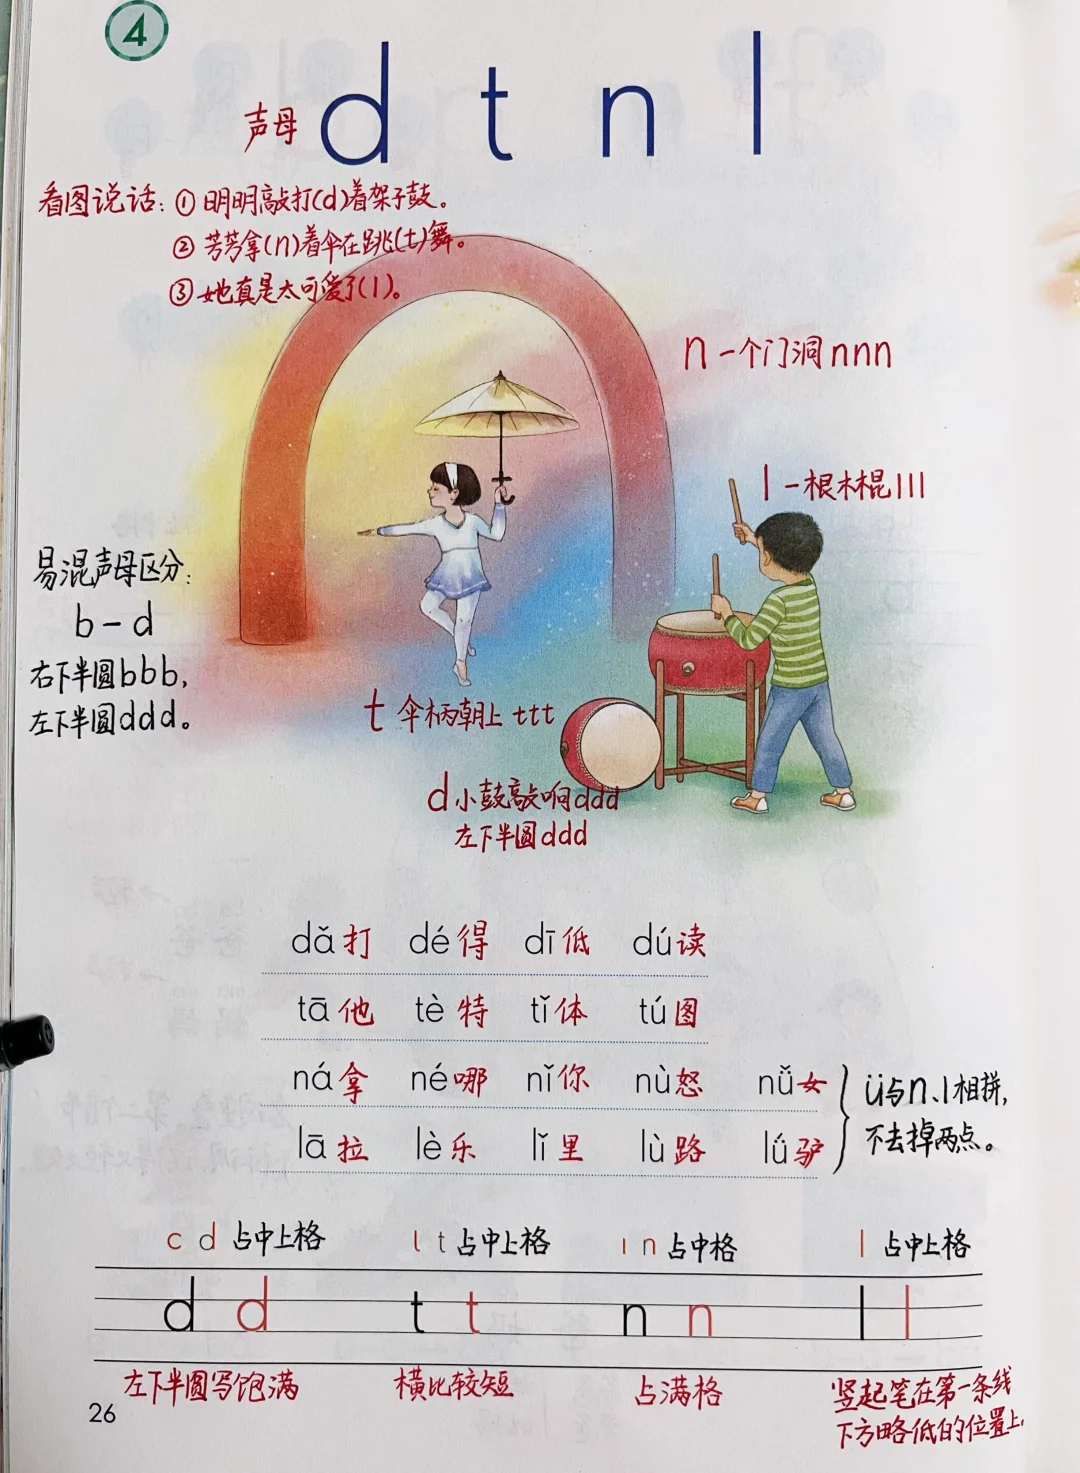 4
声母 d t n l
看图说话：①明明敲打(d)着架子鼓。
②芳芳拿(n)着伞在跳(t)舞。
③她真是太可爱了(l)。
n 一个门洞nnn
l 一根木棍lll
易混声母区分：
b－d
右下半圆bbb，
左下半圆ddd。
t 伞柄朝上 ttt
d 小鼓敲响ddd
左下半圆ddd
dǎ打 dé得 dī低 dú读
tā他 tè特 tǐ体 tú图
ná拿 né哪 nǐ你 nù怒 nǚ女
lā拉 lè乐 lǐ里 lù路 lǘ驴
ü与n、l相拼，
不去掉两点。
c d 占中上格 l t 占中上格 ı n 占中格 l 占中上格
d d t t n n l l
左下半圆写饱满 横比较短 占满格 竖起笔在第一条线
下方略低的位置上。
26